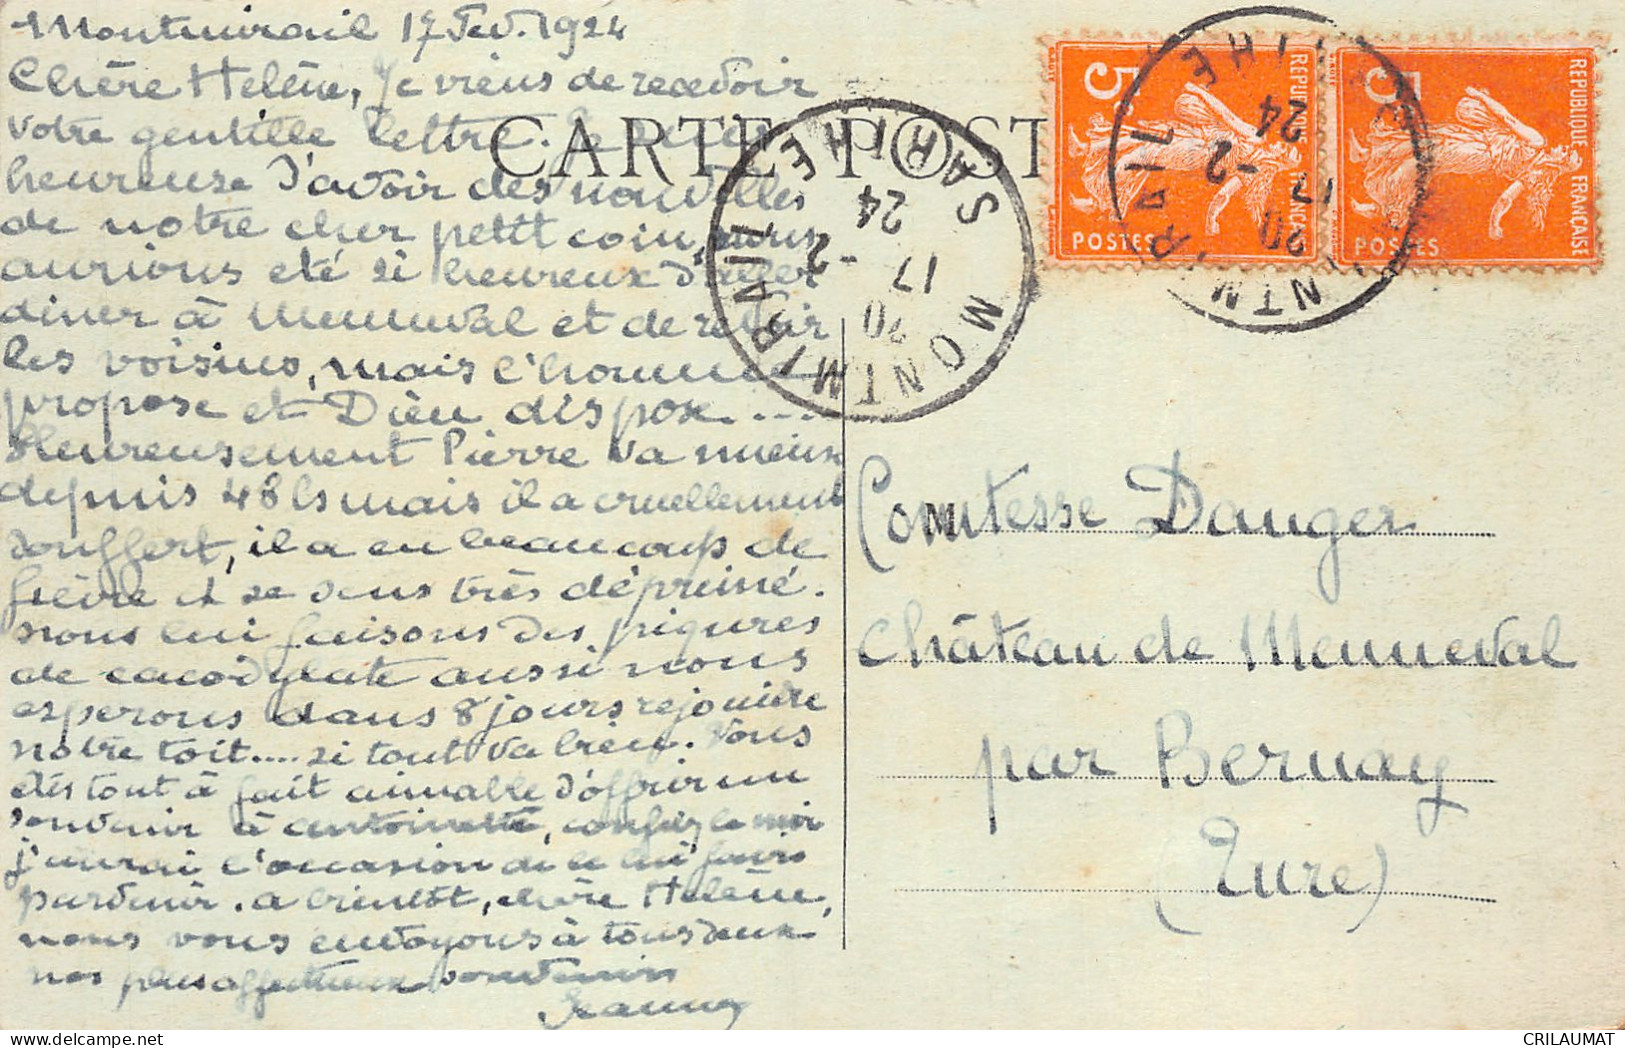 Montmirail 17 Fev. 1924
Chère Helène, Je viens de recevoir
votre gentille lettre. Je suis
heureuse d'avoir des nouvelles
de notre cher petit coin, nous
aurions eté si heureux d'aller
diner à Menneval et de revoir
les voisins, mais l'homme
propose et Dieu dispose ....
Heureusement Pierre va mieux
depuis 48 hs mais il a cruellement
souffert, il a eu beaucoup de
fièvre et se sens très déprimé.
nous lui faisons des piqures
de cacodylate aussi nous
esperons dans 8 jours rejoindre
notre toit.... si tout va bien. Vous
êtes tout à fait aimable d'offrir un
souvenir à Antoinette, confiez le moi
j'aurai l'occasion de le lui faire
parvenir. a bientôt, chère Helène,
nous vous envoyons à tous deux
nos plus affectueux souvenirs
Jeanne
CARTE POST
Comtesse Danger
Château de Menneval
par Bernay
(Eure)
MONTMIRAIL
SARTHE
20
17 -2
24
MONTMIRAIL
SARTHE
20
17 -2
24
5c
REPUBLIQUE FRANÇAISE
POSTES
5c
REPUBLIQUE FRANÇAISE
POSTES
CRILAUMAT